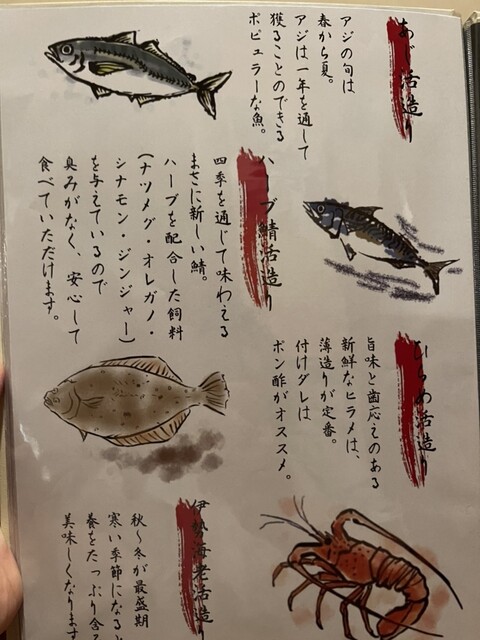 あじ活造り
アジの旬は
春から夏。
アジは一年を通して
獲ることのできる
ポピュラーな魚。
ハーブ鯖活造り
四季を通じて味わえる
まさに新しい鯖。
ハーブを配合した飼料
(ナツメグ・オレガノ・
シナモン・ジンジャー)
を与えているので
臭みがなく、安心して
食べていただけます。
ひらめ活造り
旨味と歯応えのある
新鮮なヒラメは、
薄造りが定番。
付けダレは
ポン酢がオススメ。
伊勢海老活造り
秋〜冬が最盛期
寒い季節になると
養をたっぷり含
美味しくなります